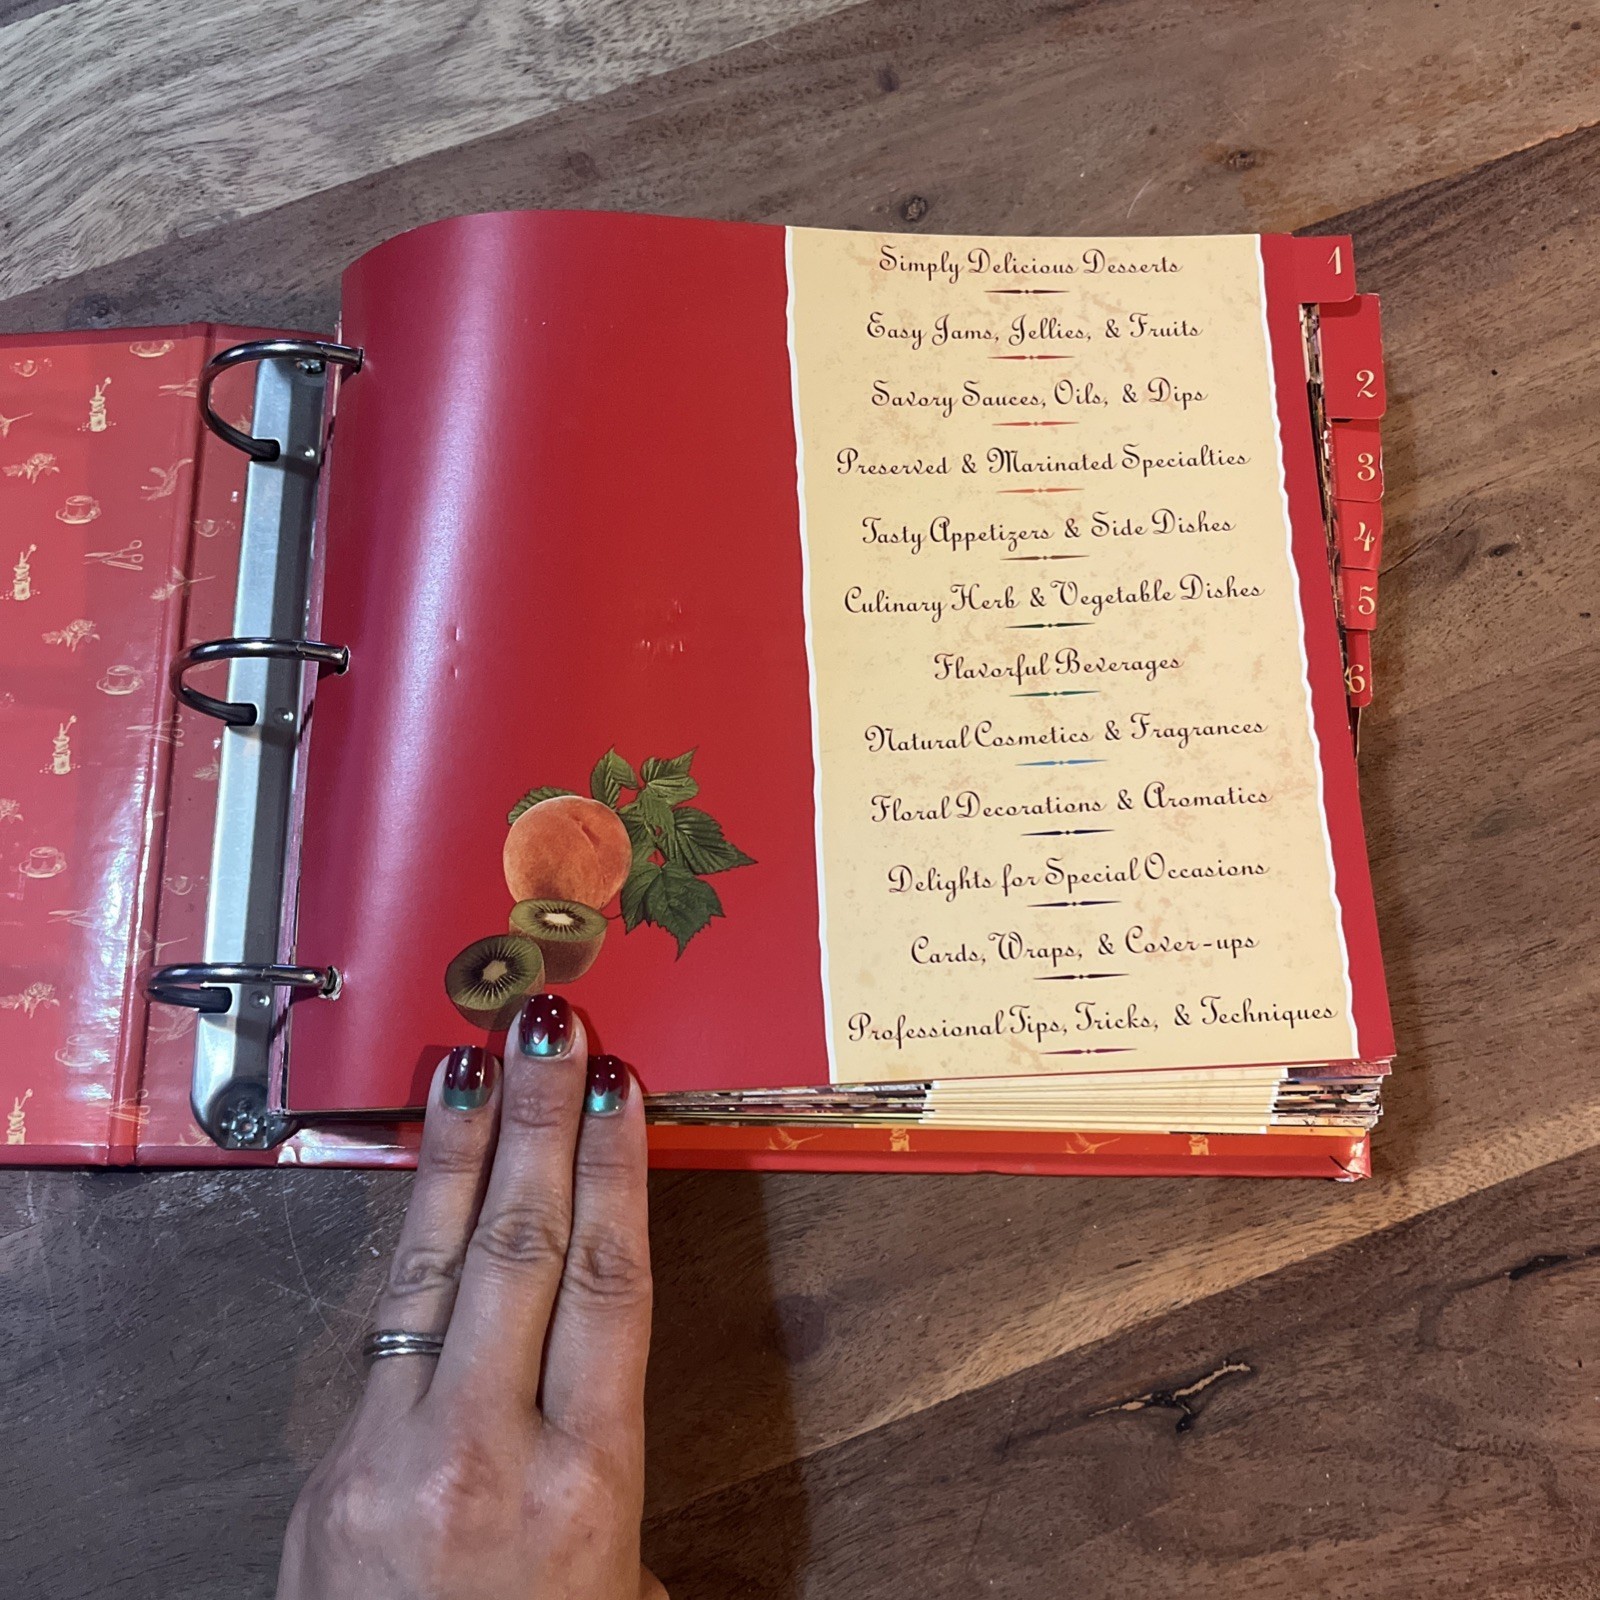 Simply Delicious Desserts
Easy Jams, Jellies, & Fruits
Savory Sauces, Oils, & Dips
Preserved & Marinated Specialties
Tasty Appetizers & Side Dishes
Culinary Herb & Vegetable Dishes
Flavorful Beverages
Natural Cosmetics & Fragrances
Floral Decorations & Aromatics
Delights for Special Occasions
Cards, Wraps, & Cover-ups
Professional Tips, Tricks, & Techniques
1
2
3
4
5
6